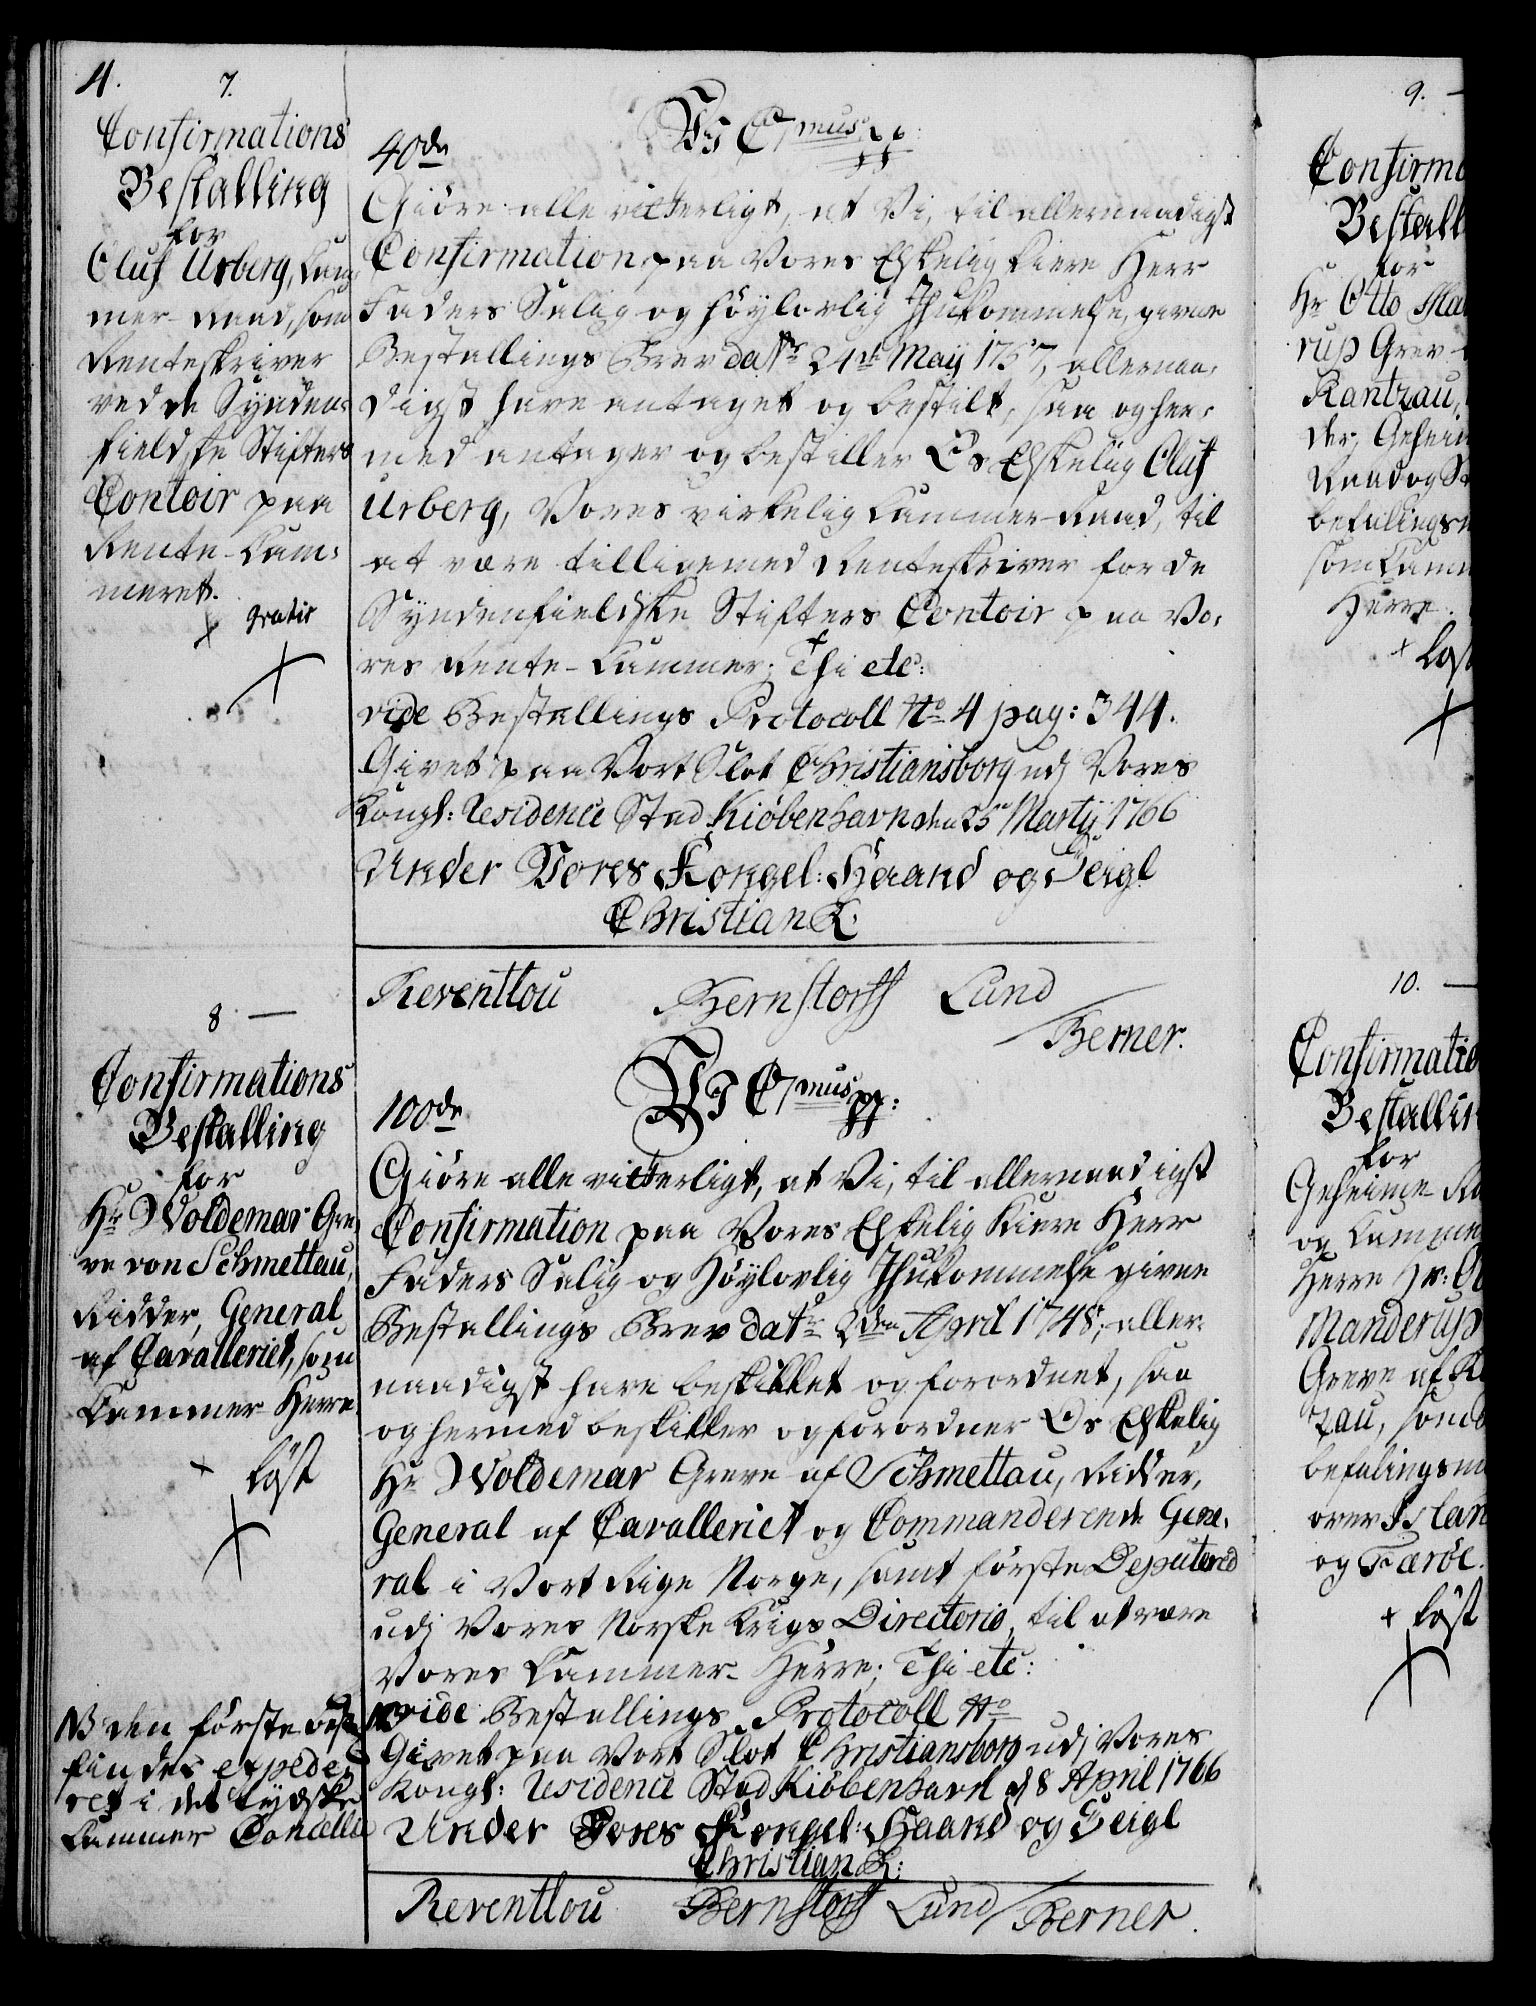 4.
7.
Confirmations
Bestalling
for
Oluf Urberg, Cam¬
mer-Raad, som
Renteskriver
ved de Synden¬
fieldske Stifters
Contoir paa
Rente-Cam¬
meret.
+ gratis
40de
Vi C7mus pp:
Giöre alle vitterligt, at Vi, til allernaadigst
Confirmation paa Vores Elskelig kiere Herr
Faders Salig og höylovlig Ihukommelse, givne
Bestallings Brev dat: 24de Maÿ 1757, allernaa¬
digst have antaget og bestilt, saa og her¬
med antager og bestiller Os Elskelig Oluf
Urberg, Vores virkelig Cammer-Raad, til
at være tilligemed Renteskriver for de
Syndenfieldske Stifters Contoir paa Vo¬
res Rente-Cammer; Thi etc:
vide Bestallings Protocoll No 4 pag: 344.
Givet paa Vort Slot Christiansborg udj Vores
Kongl: Residence Stad Kiöbenhavn den 25 Martÿ 1766
Under Vores Kongel: Haand og Seigl
Christian R:
Reventlou Bernstorff Lund
/ Berner.
8 —
Confirmations
Bestalling
for
Hr Woldemar Gre¬
ve von Schmettau,
Ridder, General
af Cavalleriet, som
Cammer-Herre.
+ löst
NB den förste best
findes expede¬
ret i det tydske
Cammer Cancellie
100de
Vi C7mus pp:
Giöre alle vitterligt, at Vi, til allernaadigst
Confirmation paa Vores Elskelig Kiere Herr
Faders Salig og Höylovlig Ihukommelse givne
Bestallings Brev dat: 2den April 1748, aller¬
naadigst have beskikket og forordnet, saa
og hermed beskikker og forordner Os Elskelig
Hr Woldemar Greve af Schmettau, Ridder,
General af Cavalleriet og Commanderende Gene¬
ral i Vort Rige Norge, samt förste Deputered
udj Vores Norske Krigs Directorio, til at være
Vores Cammer-Herre; Thi etc:
NB vide Bestallings Protocoll No
Givet paa Vort Slot Christiansborg udj Vores
Kongl: Residence Stad Kiöbenhavn d 8 April 1766
Under Vores Kongel: Haand og Seigl
Christian R:
Reventlou Bernstorff Lund / Berner.
9. —
Confirma
Bestall
for
Hr Otto Man
rup Grev
Rantzau,
der, Geheim
Raad og
befalingsm
som Camm
Herre.
+ löst
10. —
Confirmatio
Bestallin
for
Geheime-Ra
og Camme
Herre Hr: O
Manderup
Greve af R
zau, som
befalingsm
over Islan
og Færöe.
+ löst